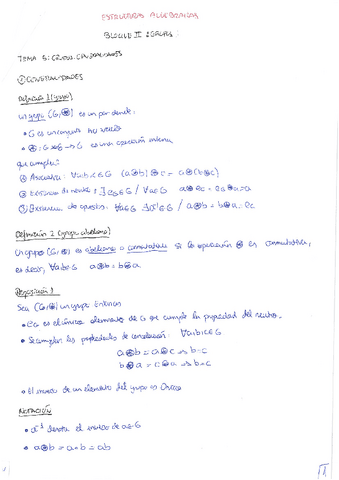 ESTRUCTURAS ALGEBRAICAS
BLOQUE II: GRUPOS
TEMA 5: GRUPOS. GENERALIDADES
① GENERALIDADES
Definición 1 (grupo)
Un grupo (G,⊛) es un par donde:
• G es un conjunto no vacío
• ⊛: G×G → G es una operación interna
que cumplen:
① Asociativa: ∀a,b,c∈G (a⊛b)⊛c = a⊛(b⊛c)
② Existencia de neutro: ∃ e_G∈G / ∀a∈G a⊛e_G = e_G⊛a = a
③ Existencia de opuestos: ∀a∈G / a⊛b = b⊛a = e_G
Definición 2 (grupo abeliano)
Un grupo (G,⊛) es abeliano o conmutativo si la operación ⊛ es conmutativa,
es decir, ∀a,b∈G a⊛b = b⊛a.
Proposición 1
Sea (G,⊛) un grupo. Entonces
• e_G es el único elemento de G que cumple la propiedad del neutro.
• Se cumplen las propiedades de cancelación: ∀a,b,c∈G
a⊛b = a⊛c ⇒ b=c
b⊛a = c⊛a ⇒ b=c
• El inverso de un elemento del grupo es único
NOTACIÓN
• a⁻¹ denota el inverso de a∈G
• a⊛b = a·b = ab
1